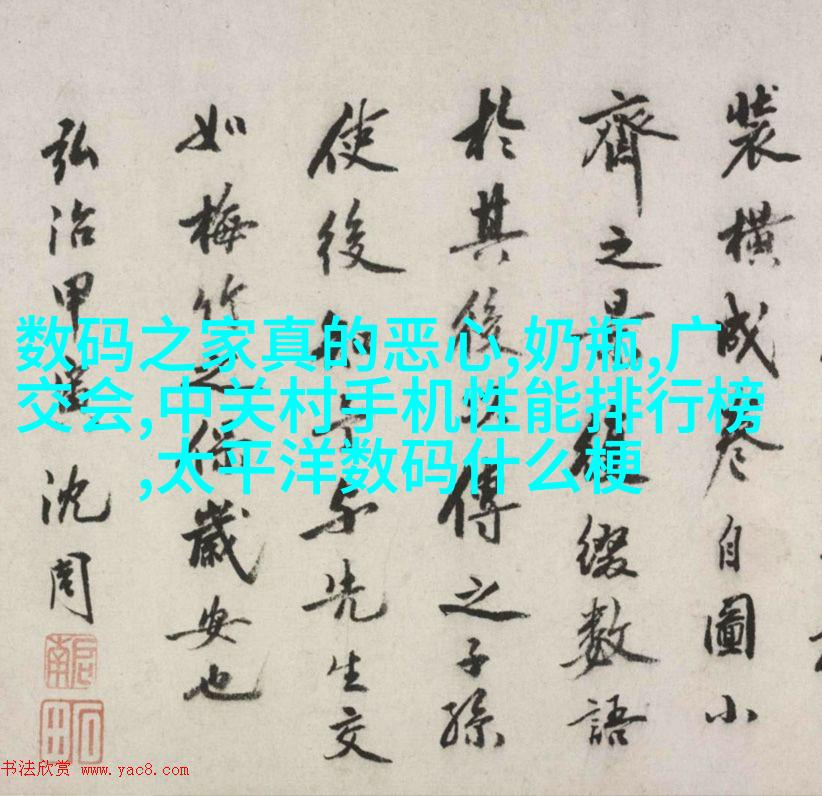 裝橫成卷自圖小
齊之景後綴數語
於其後以傳之子孫
使後知予與先生交
如梅竹之俗歲安也
弘治甲
沈周
数码之家真的恶心,奶瓶,广
交会,中关村手机性能排行榜
,太平洋数码什么梗
书法欣赏 www.yac8.com